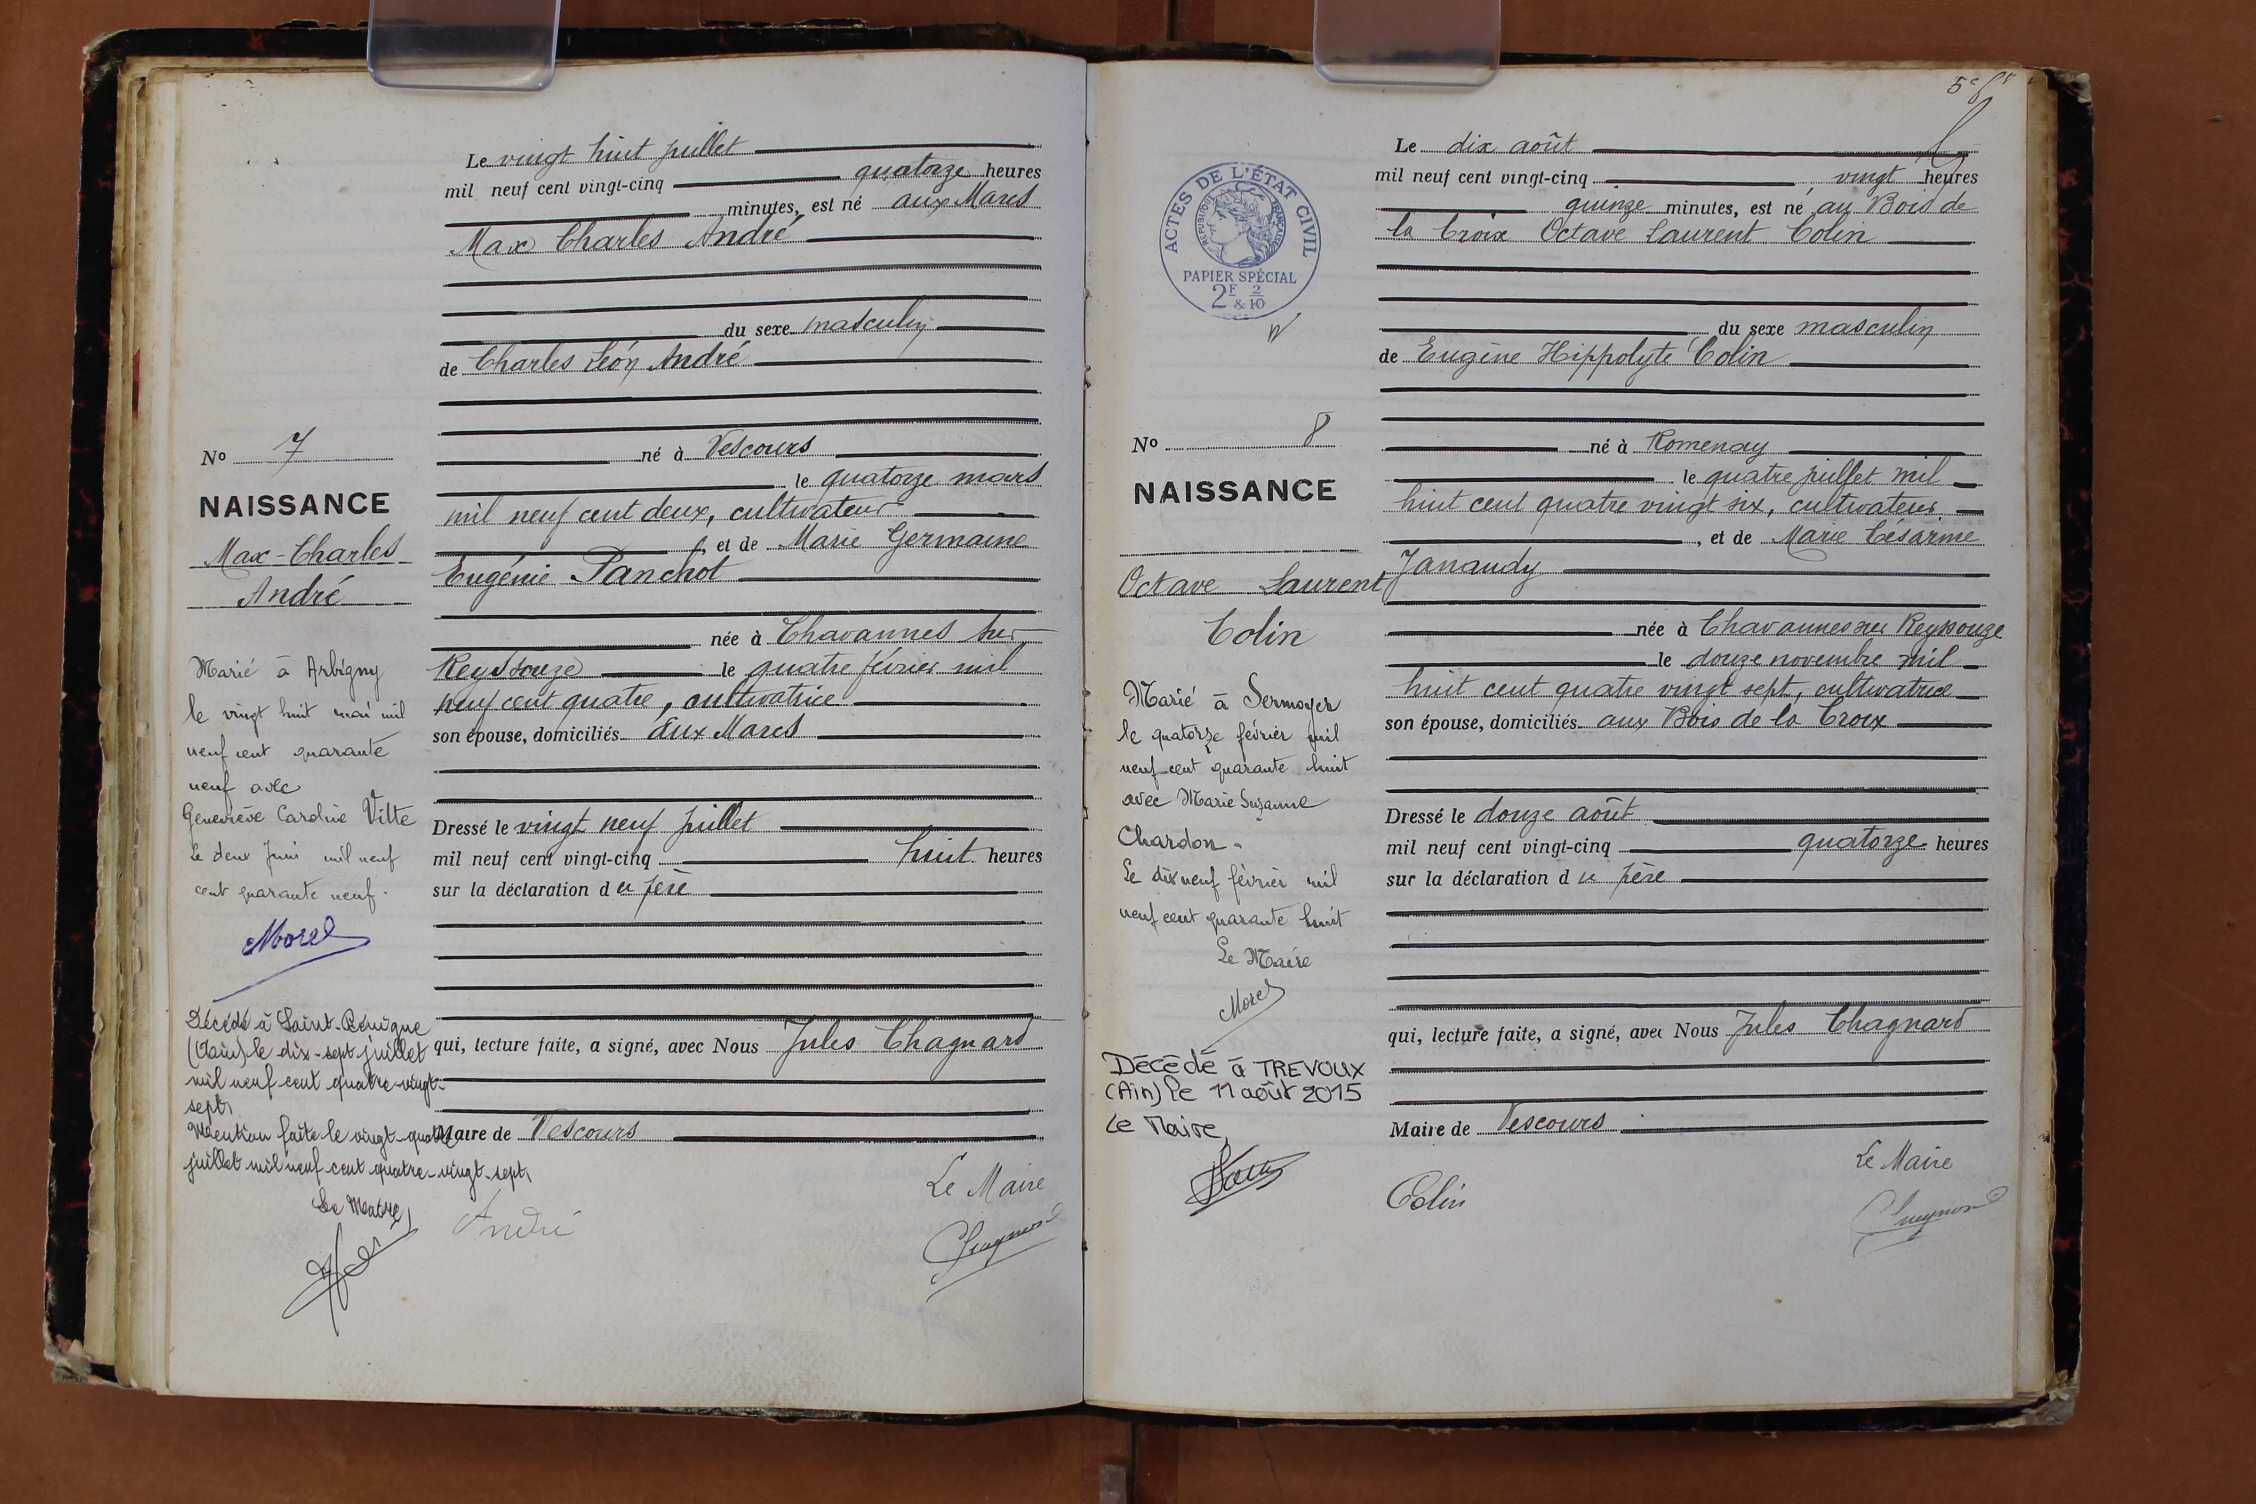 Le vingt huit juillet
mil neuf cent vingt-cinq quatorze heures
minutes, est né aux Mares
Max Charles André
du sexe masculin
de Charles Léon André
né à Vescours
le quatorze mars
mil neuf cent deux, cultivateur
, et de Marie Germaine
Eugénie Panchot
née à Chavannes sur
Reyssouze le quatre février mil
neuf cent quatre, cultivatrice
son épouse, domiciliés aux Mares
Dressé le vingt neuf juillet
mil neuf cent vingt-cinq huit heures
sur la déclaration du père
qui, lecture faite, a signé, avec Nous Jules Chagnard
Maire de Vescours
Le Maire
André
No 7
NAISSANCE
Max-Charles
André
Marié à Arbigny
le vingt huit mai mil
neuf cent quarante
neuf avec
Geneviève Caroline Vitte
Le deux Juin mil neuf
cent quarante neuf.
Morel
Décédé à Saint-Bénigne
(Ain) le dix-sept juillet
mil neuf cent quatre-vingt-
sept
Mention faite le vingt-quatre
juillet mil neuf cent quatre-vingt-sept
Le Maire
Le dix août
mil neuf cent vingt-cinq vingt heures
quinze minutes, est né au Bois de
la Croix Octave Laurent Colin
du sexe masculin
de Eugène Hippolyte Colin
né à Romenay
le quatre juillet mil
huit cent quatre vingt six, cultivateur
, et de Marie Césarine
Janaudy
née à Chavannes sur Reyssouze
le douze novembre mil
huit cent quatre vingt sept, cultivatrice
son épouse, domiciliés aux Bois de la Croix
Dressé le douze août
mil neuf cent vingt-cinq quatorze heures
sur la déclaration du père
qui, lecture faite, a signé, avec Nous Jules Chagnard
Maire de Vescours
Le Maire
Colin
ACTES DE L'ÉTAT CIVIL
RÉPUBLIQUE FRANÇAISE
PAPIER SPÉCIAL
2F & 2/10
No 8
NAISSANCE
Octave Laurent
Colin
Marié à Sermoyer
le quatorze février mil
neuf cent quarante huit
avec Marie Suzanne
Chardon.
Le dix neuf février mil
neuf cent quarante huit
Le Maire
Morel
Décédé à TREVOUX
(Ain) le 11 août 2015
Le Maire